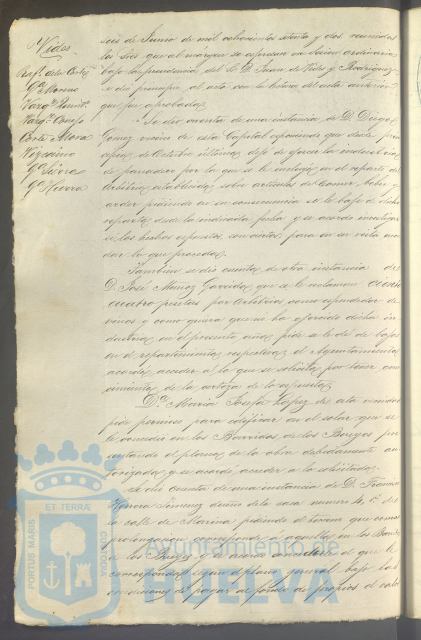 Vides
Raf. de la Corte
Gª Moreno
Varg. 
Varg. Conejo
Corte Mora
Vizcaino
Gª 
Gª Rivera
seis de Junio de mil ochocientos setenta y dos reunidos
los Sres que al márgen se espresan en sesion ordinaria
bajo la presidencia del Sr. D. Juan de Vides y Rodriguez
se dió principio al acto con la lectura del acta anterior
que fué aprobada.
Se dió cuenta de una instancia de D. Diego
Gomez vecino de esta Capital esponiendo que desde pri
de Octubre último dejó de ejercer la industria
de panadero por la que se le incluyó en el reparto de
Arbitrios establecidos sobre artículos de comer, beber y
arder pidiendo en su consecuencia se le baje de dicho
reparto desde la indicada fecha y se acordó investigar
si los hechos espuestos son ciertos, para en su vista acor
dar lo que proceda.
Tambien se dió cuenta de otra instancia de
D. José Muñoz Garrido, que se le reclaman ciento
cuatro pesetas por Arbitrios como espendedor de
vinos y como quiera que no ha ejercido dicha in
dustria en el presente año, pide se le dé de baja
en el repartimiento respectivo; el Ayuntamiento
acordó acceder á lo que se solicita por tener cono
cimiento de la certeza de lo espuesto.
Dª Maria Josefa Lopez de esta vecindad
pide permiso para edificar en el solar que se
le concedió en los Barridos de los Burgos pre
sentando el plano de la obra debidamente au
torizado y se acordó acceder á lo solicitado.
Se dió cuenta de una instancia de D. 
Herrera Jimenez dueño de la casa numero 4, de
la calle de Marina pidiendo el terreno que como
prolongacion corresponde á aquella en los Barri
dos de los Burgos y se acordó concederle el que le
corresponda segun el plano general bajo las
condiciones de pagar al fondo de propios el valor
PORTUS MARIS
ET TERRÆ
CUSTODIA
Ayuntamiento de
HUELVA